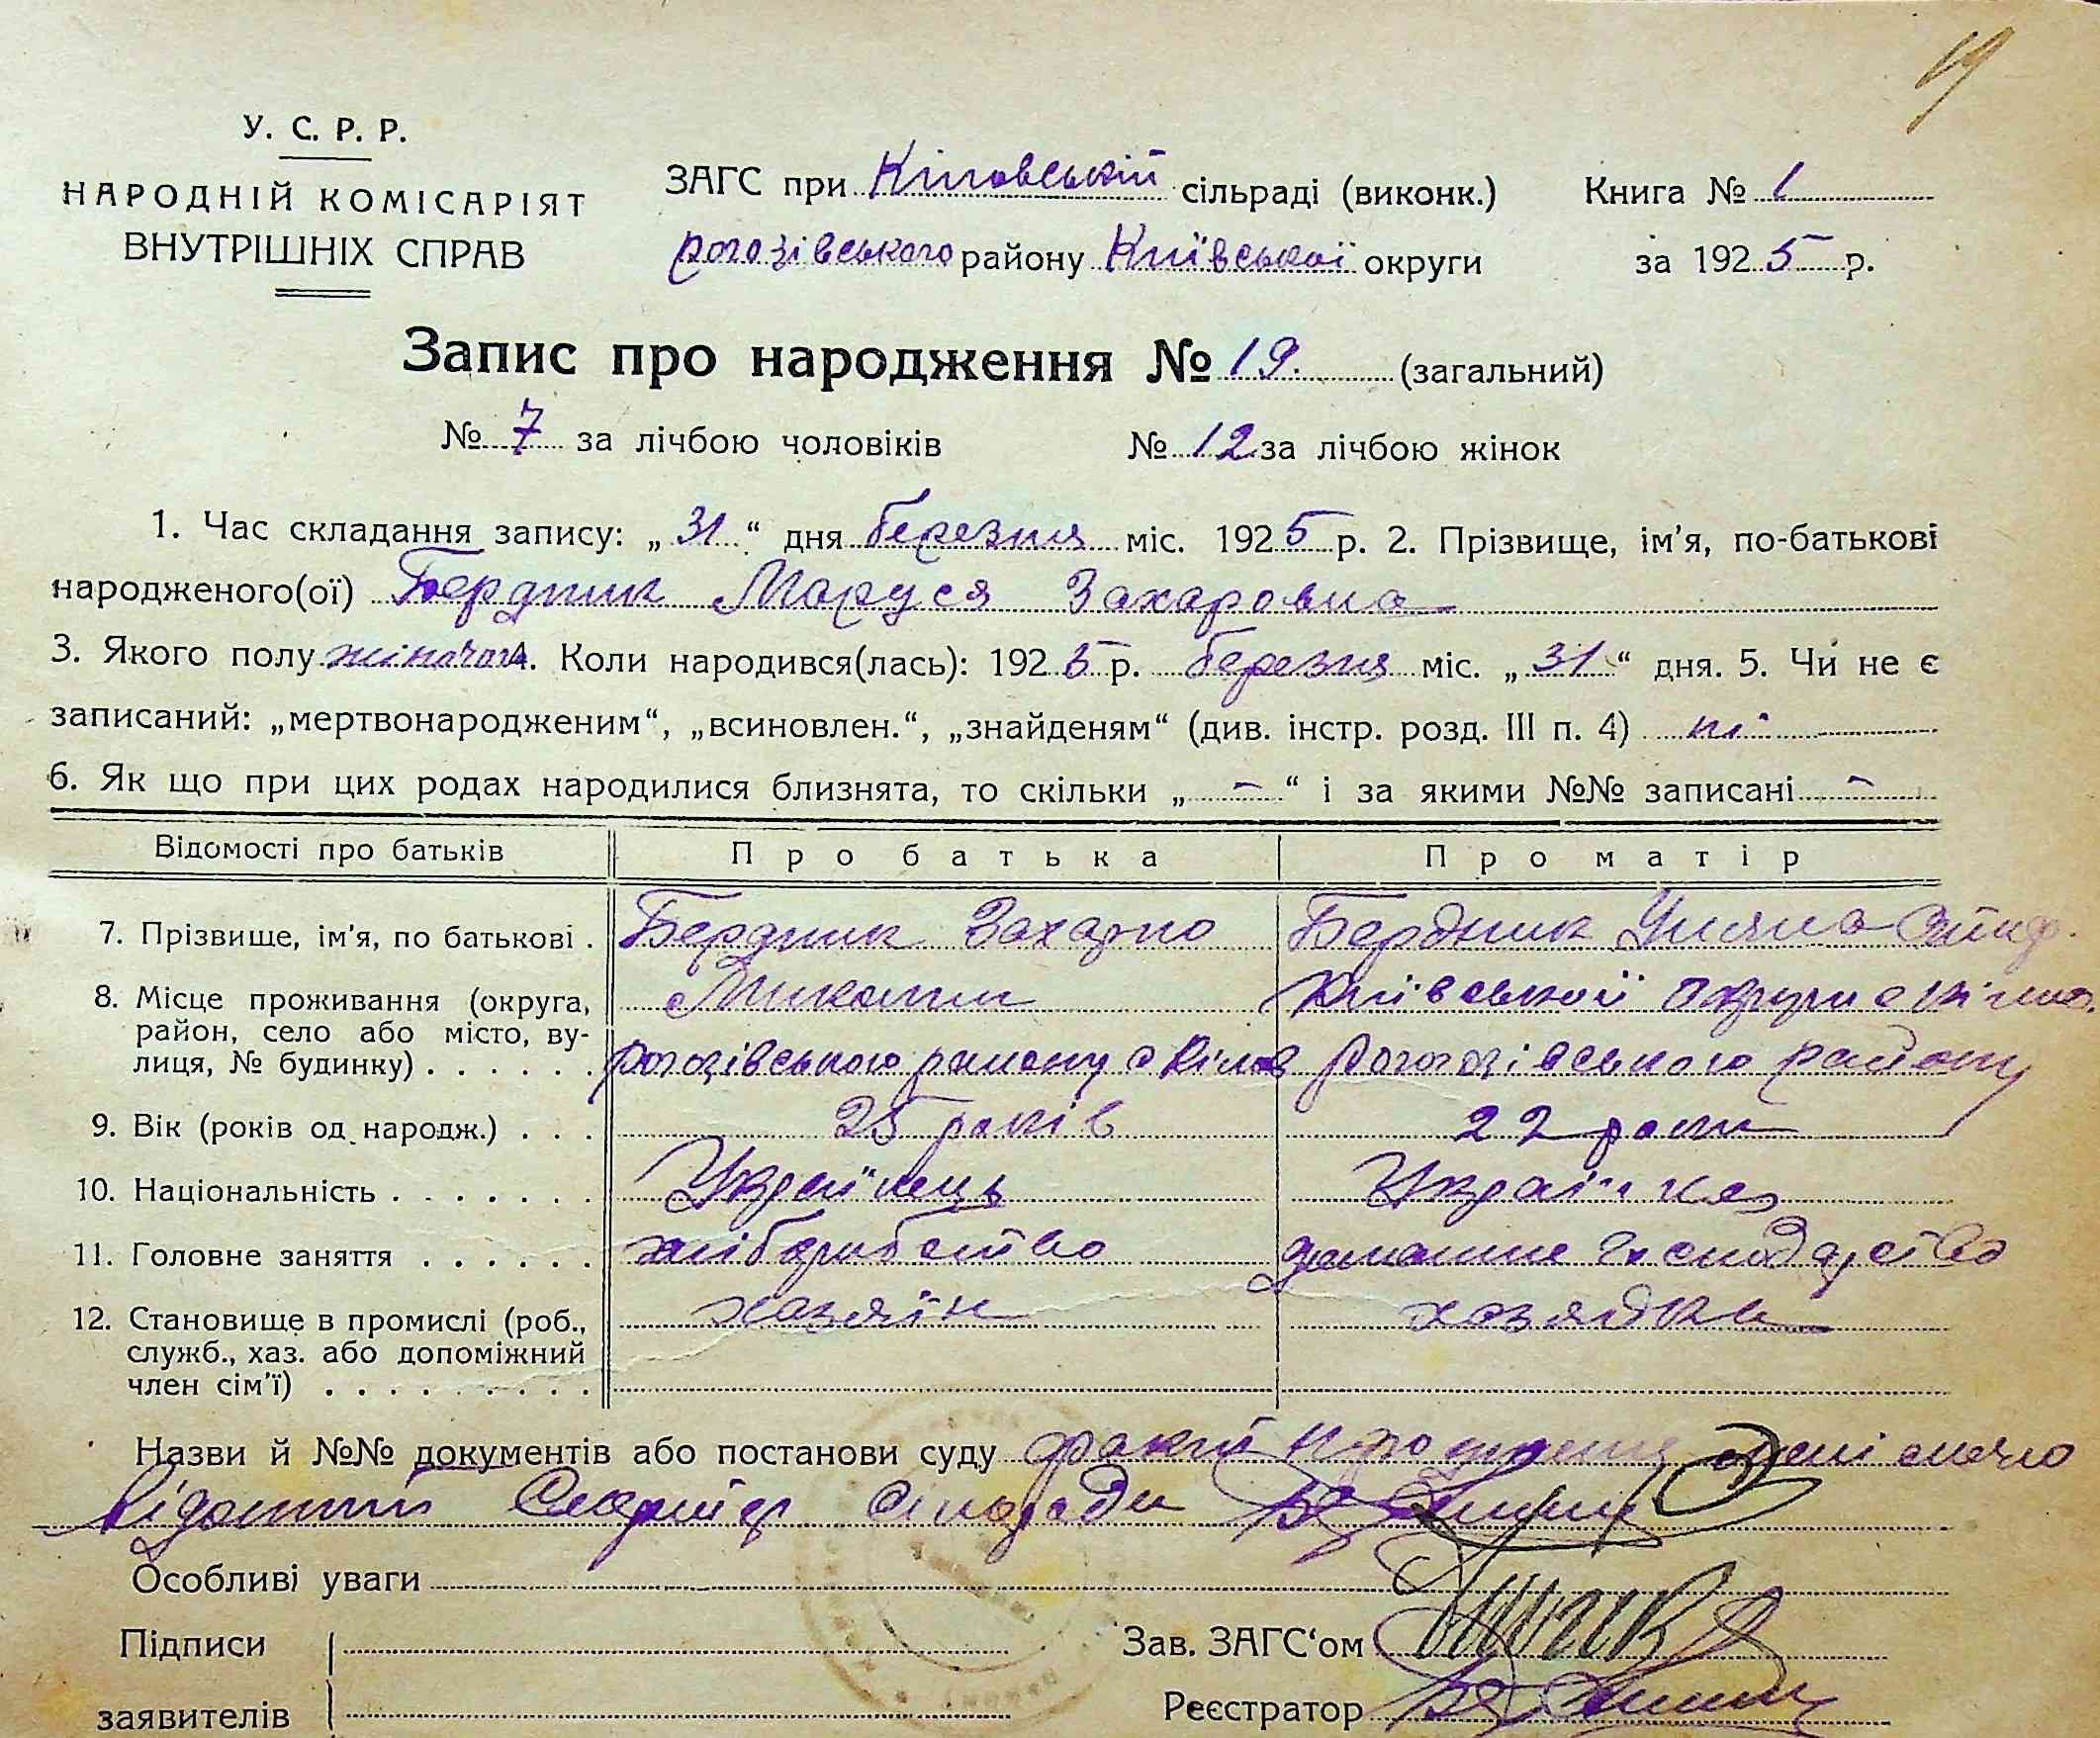 19
У. С. Р. Р.
НАРОДНІЙ КОМІСАРІЯТ
ВНУТРІШНІХ СПРАВ
ЗАГС при Кіловській сільраді (виконк.)
Рогозівського району Київської округи
Книга № 1
за 1925 р.
Запис про народження № 19. (загальний)
№ 7 за лічбою чоловіків № 12 за лічбою жінок
1. Час складання запису: „31“ дня березня міс. 1925 р. 2. Прізвище, ім’я, по-батькові
народженого(ої) Бердник Маруся Захаровна
3. Якого полу жіночого 4. Коли народився(лась): 1925 р. березня міс. „31“ дня. 5. Чи не є
записаний: „мертвонародженим“, „всиновлен.“, „знайденям“ (див. інстр. розд. III п. 4) ні
6. Як що при цих родах народилися близнята, то скільки „ – “ і за якими №№ записані –
Відомості про батьків Про батька Про матір
7. Прізвище, ім’я, по батькові . Бердник Захарко Бердник Уляна
8. Місце проживання (округа, Микит Київської округи с Кілов
район, село або місто, ву-
лиця, № будинку) . . . . . . Рогозівського району с Кілов Рогозівського району
9. Вік (років од народж.) . . . 25 років 22 роки
10. Національність . . . . . . . Українець Українка
11. Головне заняття . . . . . . хліборобство домашнє господарство
12. Становище в промислі (роб., хазяїн хазяйка
служб., хаз. або допоміжний
член сім’ї) . . . . . . . . .
Назви й №№ документів або постанови суду факт народження мені
відомий Секретар сільради
Особливі уваги
Підписи
заявителів
Зав. ЗАГС‘ом
Реєстратор